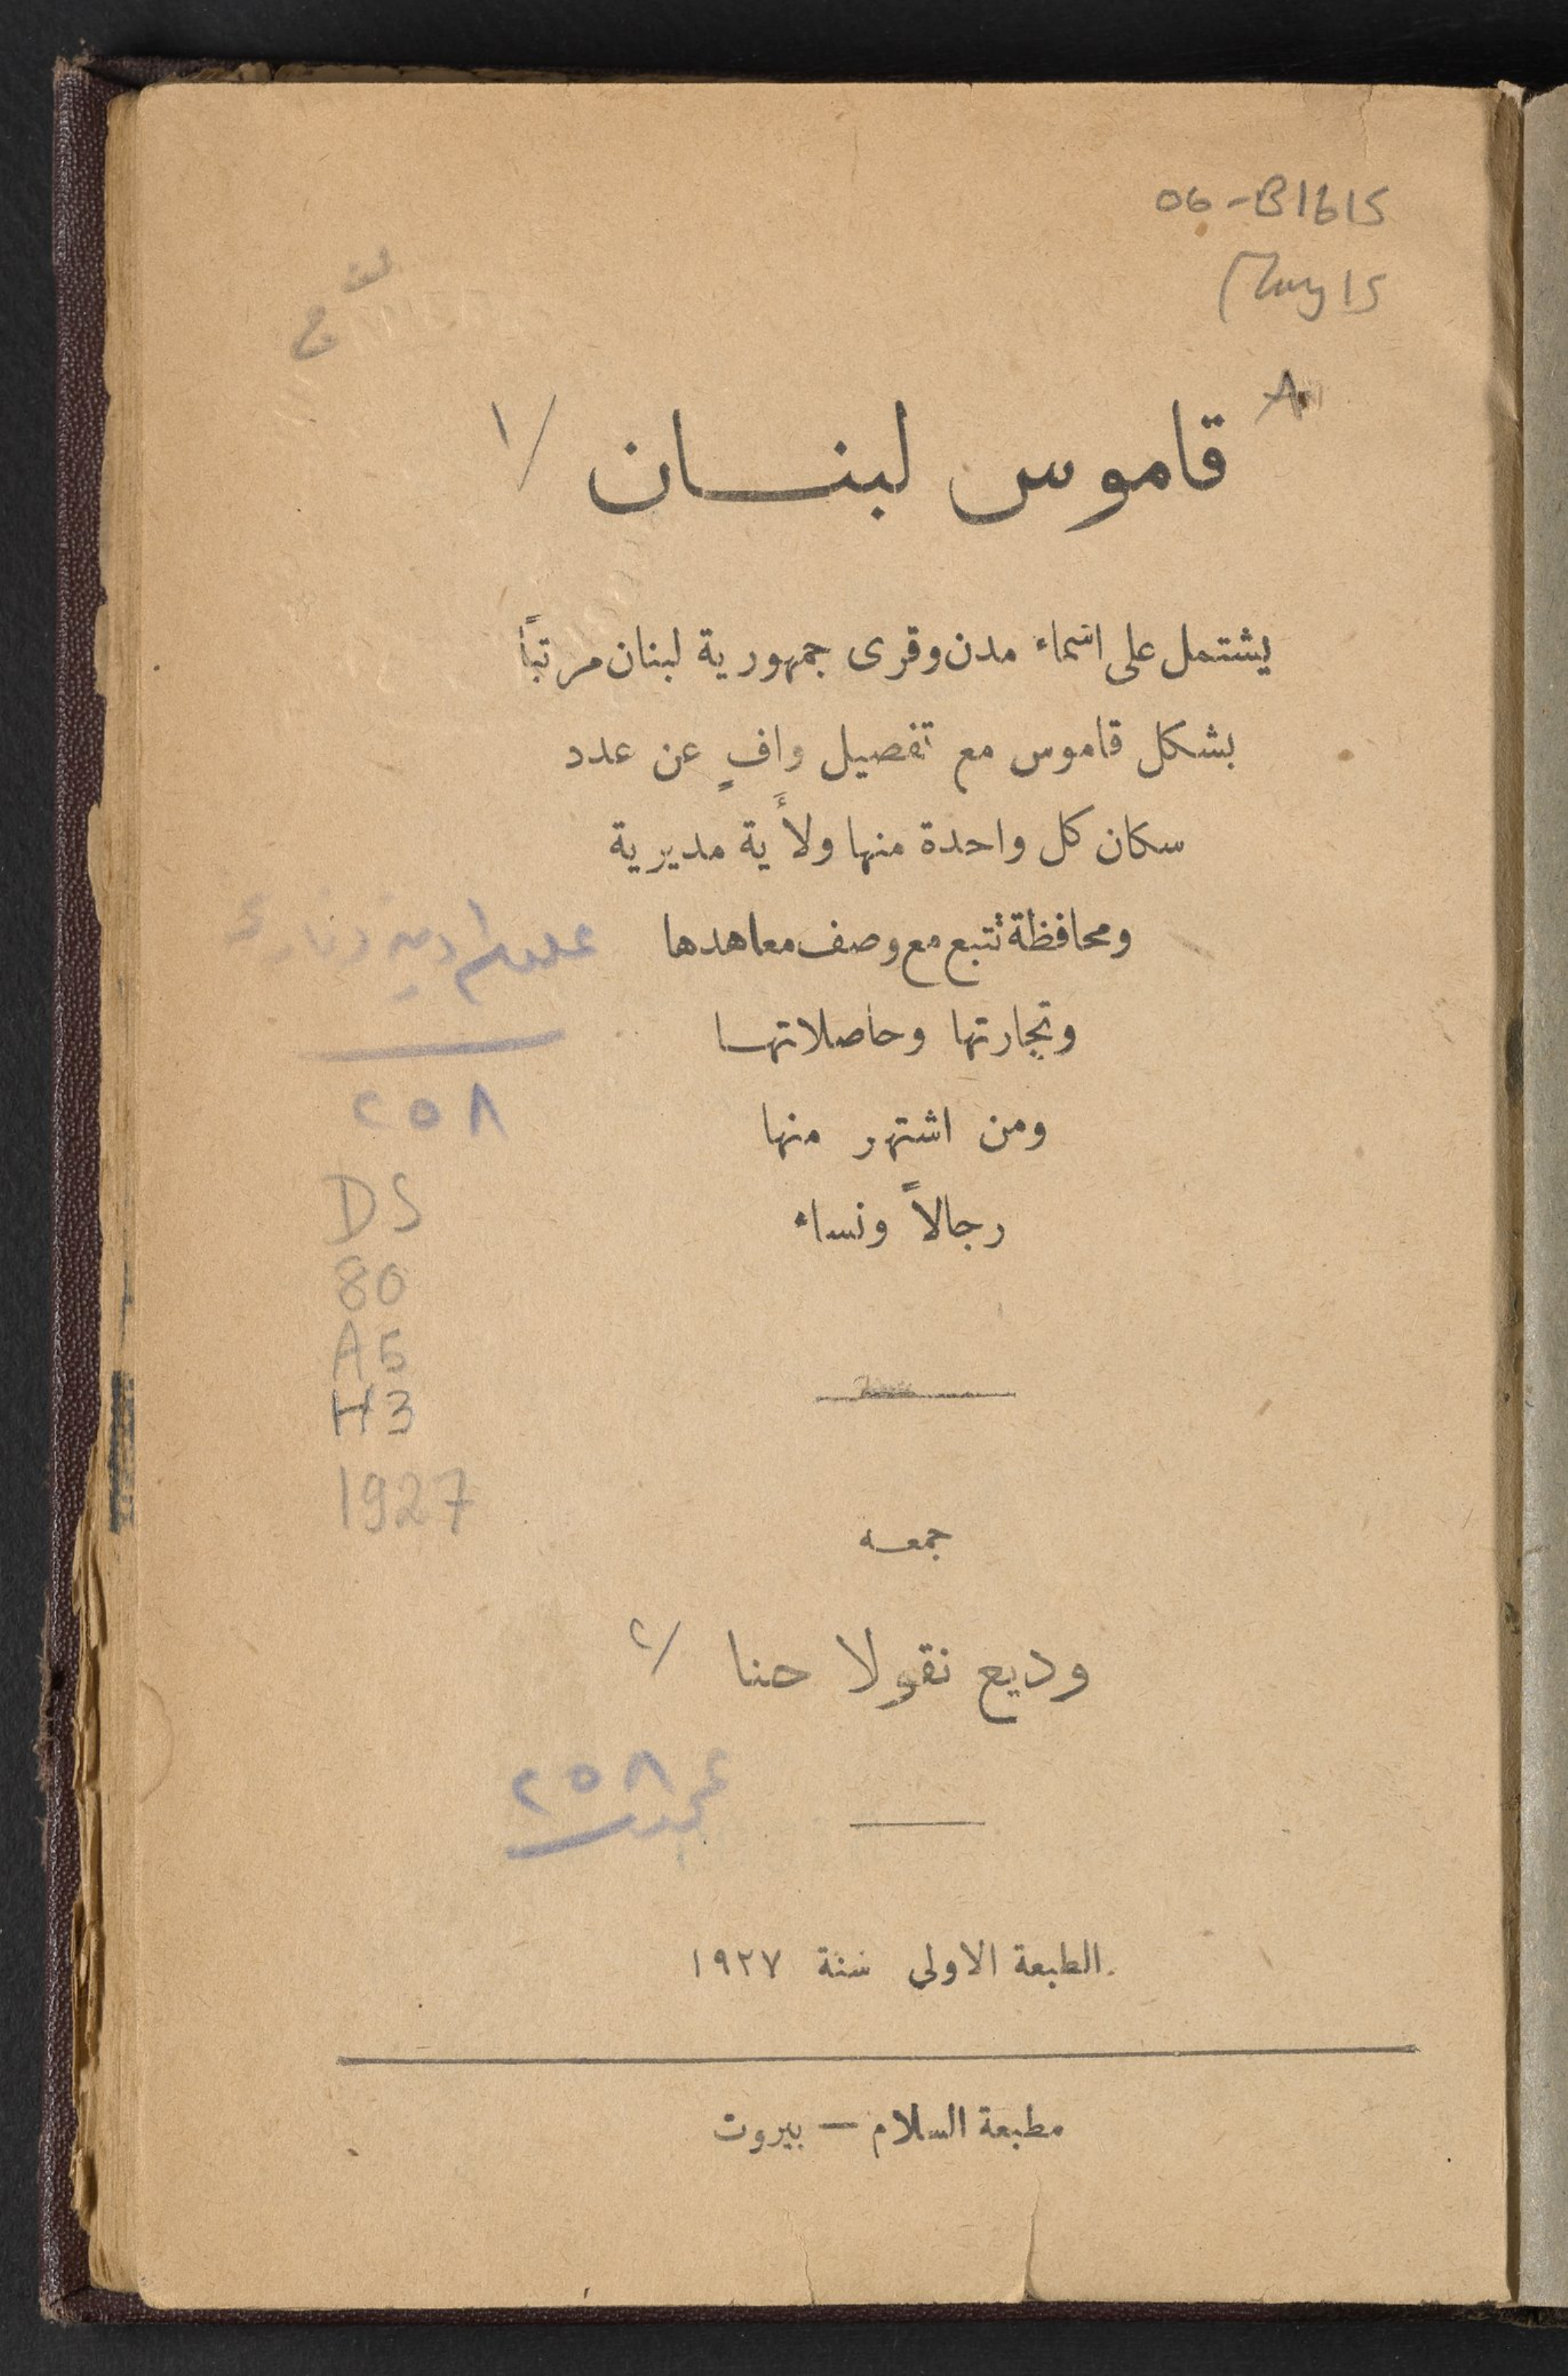 06-B1615
May 15
A
قاموس لبنان /١
يشتمل على اسماء مدن وقرى جمهورية لبنان مرتباً
بشكل قاموس مع تفصيل وافٍ عن عدد
سكان كل واحدة منها ولأَية مديرية
ومحافظة تتبع مع وصف معاهدها
وتجارتها وحاصلاتها
ومن اشتهر منها
رجالاً ونساء
٢٥٨
DS
80
A5
H3
1927
جمعه
وديع نقولا حنا /٢
٢٥٨
الطبعة الاولى سنة ١٩٢٧
مطبعة السلام — بيروت